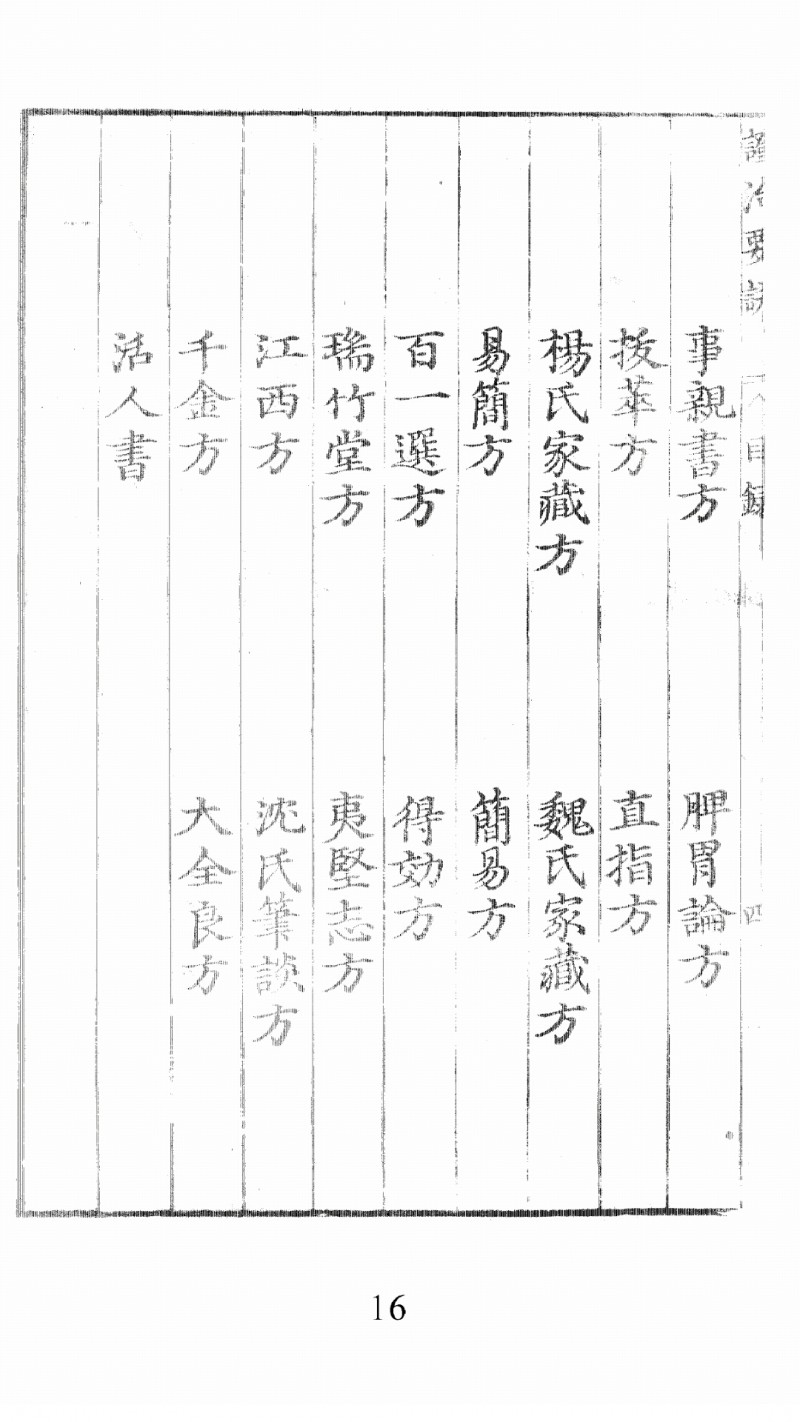 證治要訣 目録 四
事親書方 脾胃論方
拔萃方 直指方
楊氏家藏方 魏氏家藏方
易簡方 簡易方
百一選方 得効方
瑞竹堂方 夷堅志方
江西方 沈氏筆談方
千金方 大全良方
活人書
16